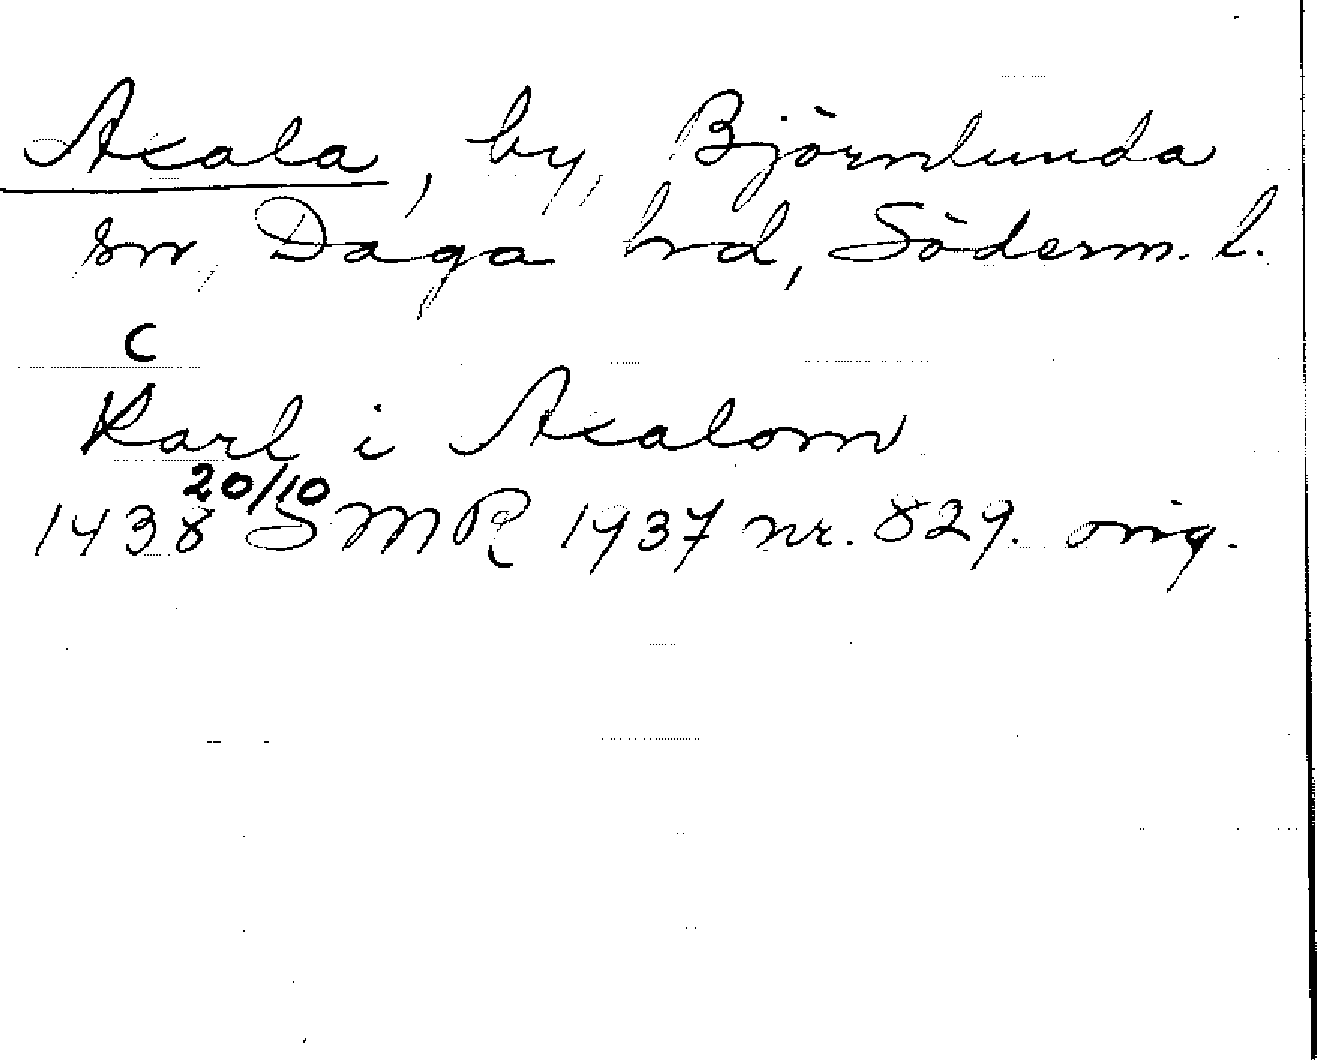 Axala, by, Björnlunda
sn, Daga hd, Söderm. l.
C
Karl i Axalom
20/10
1438 SMR 1937 nr. 829. orig.